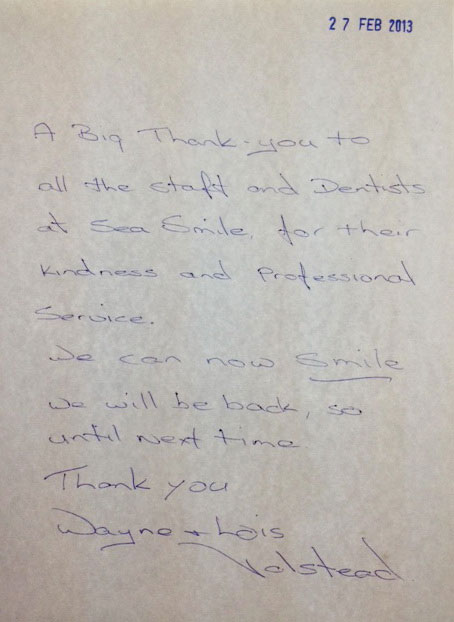 27 FEB 2013
A Big Thank-you to
all the staff and Dentists
at Sea Smile. for their
kindness and Professional
Service.
We can now Smile
we will be back, so
until next time.
Thank you
Wayne + Lois